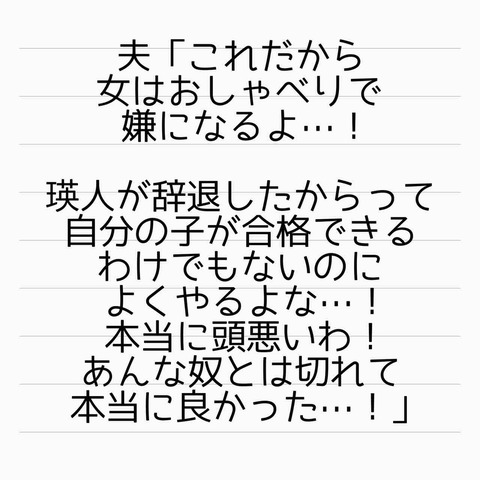 夫「これだから
女はおしゃべりで
嫌になるよ…！
瑛人が辞退したからって
自分の子が合格できる
わけでもないのに
よくやるよな…！
本当に頭悪いわ！
あんな奴とは切れて
本当に良かった…！」